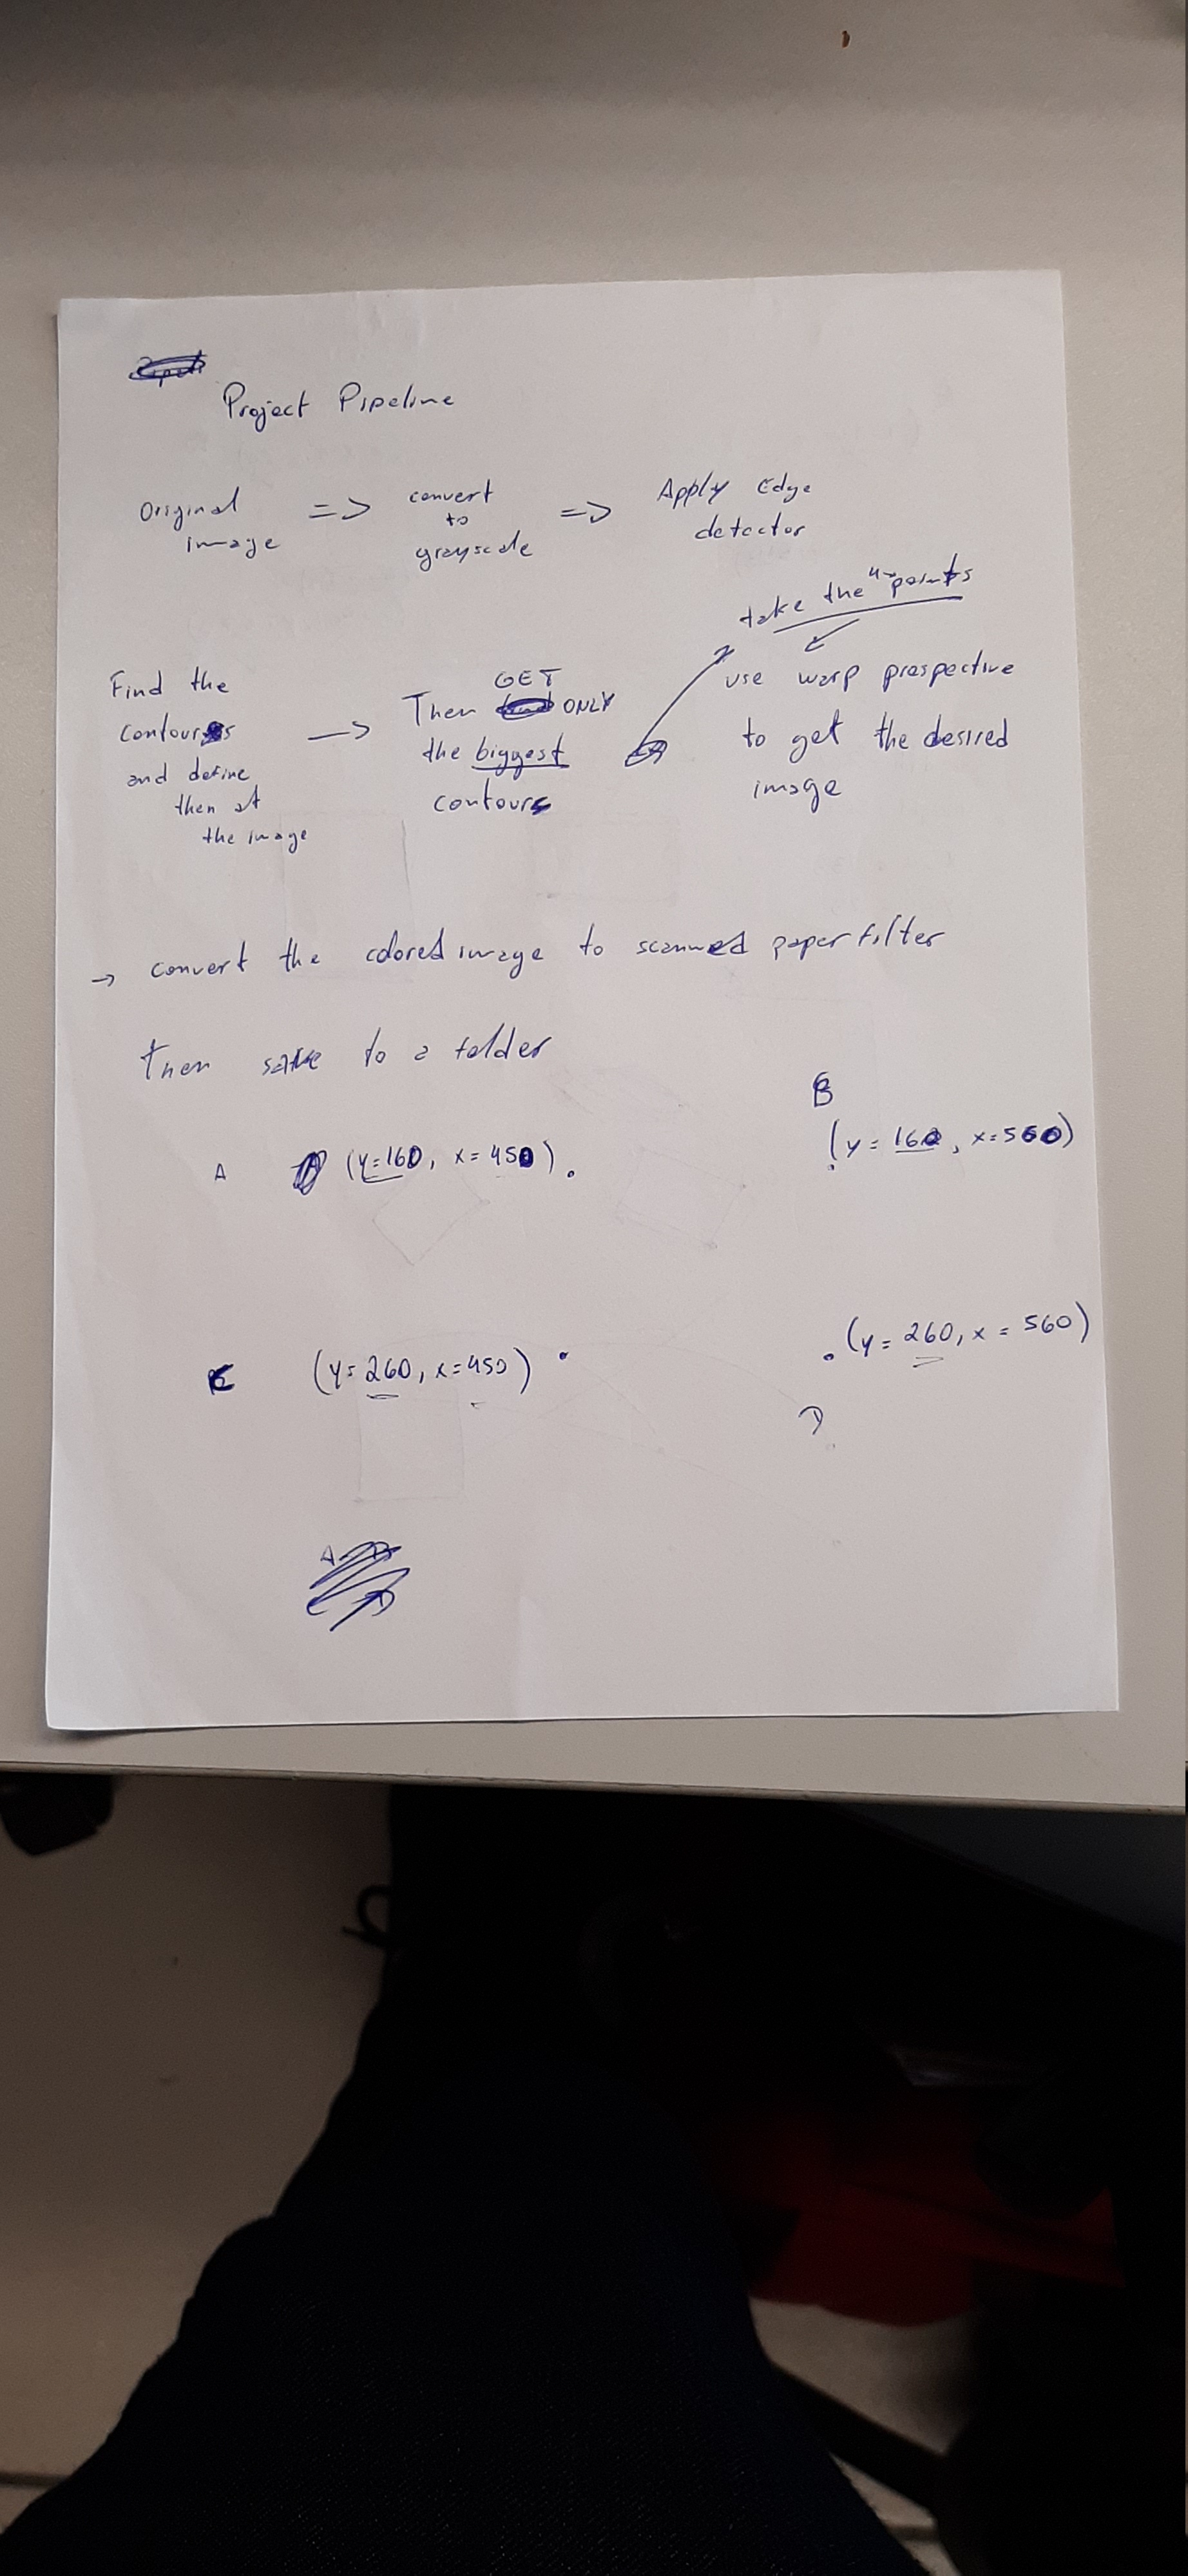 Project Pipeline
Original image => convert to grayscale => Apply Edge detector
take the 4 points
Find the contours and define then at the image -> Then GET ONLY the biggest contours
use warp prospective to get the desired image
-> convert the colored image to scanned paper filter
Then save to a folder
B
A (y=160, x=450)
(y=160, x=560)
C (y=260, x=450)
(y=260, x=560)